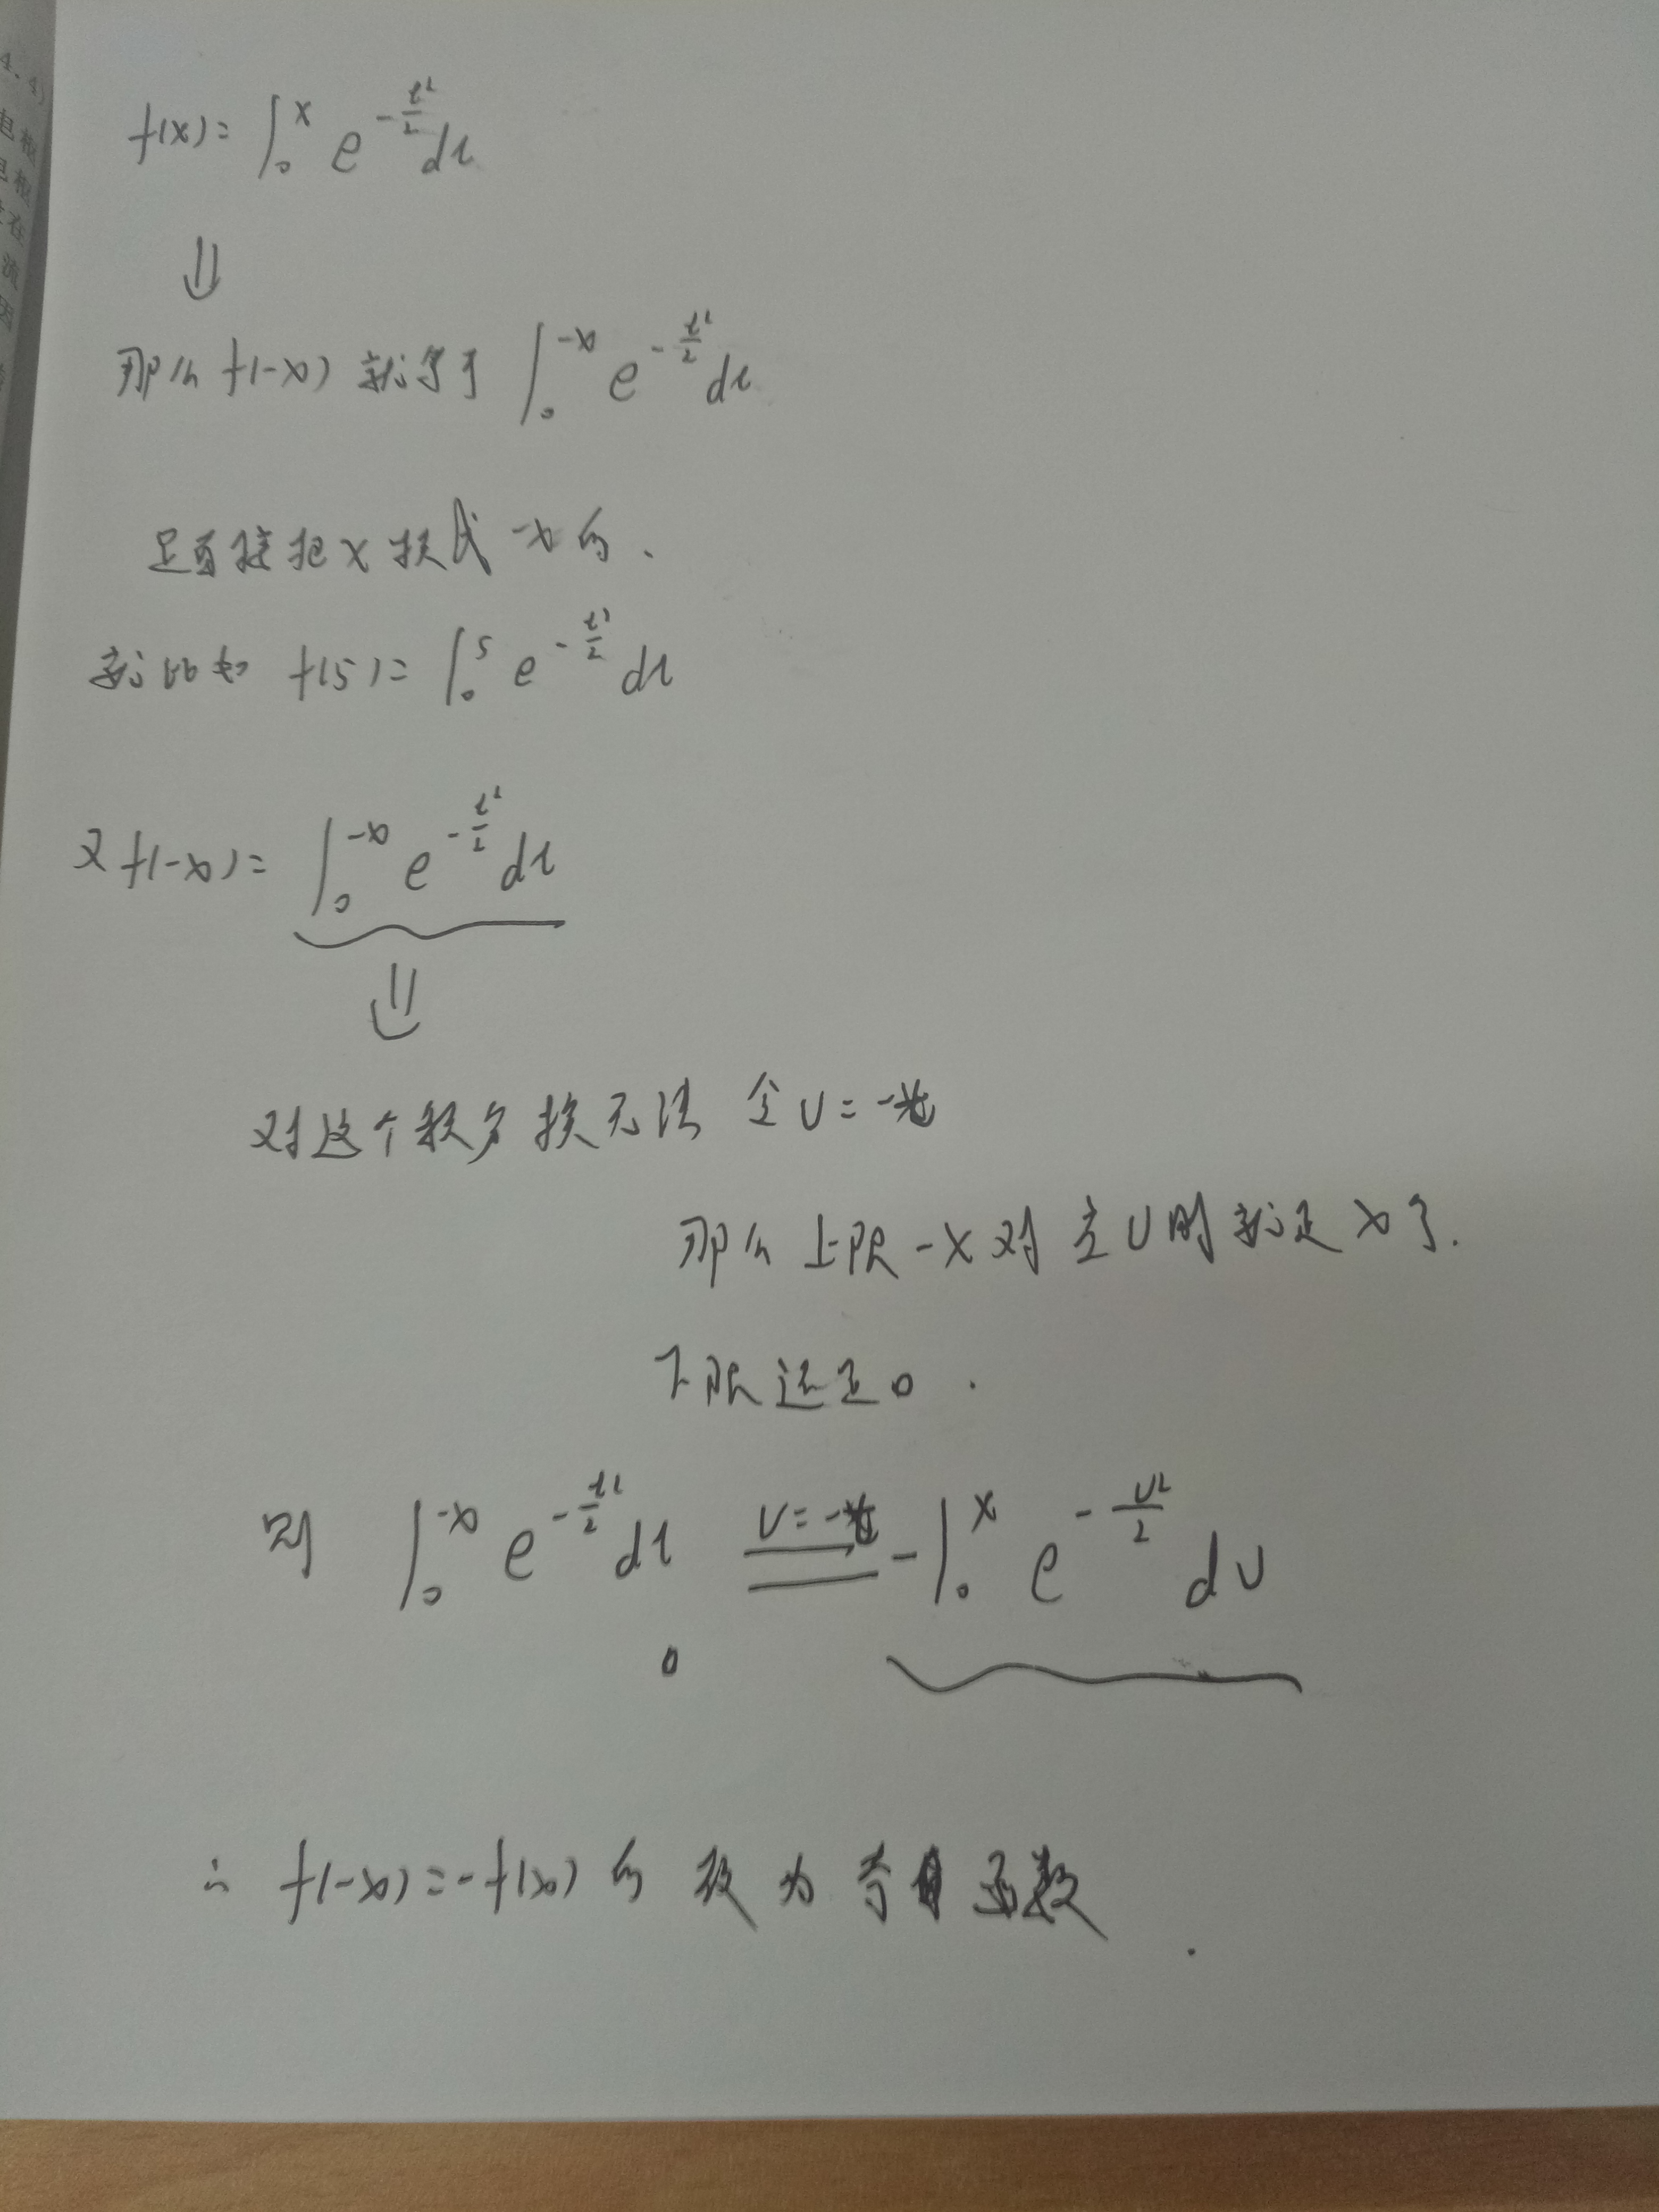 f(x)=∫₀ˣ e^{-t²/2} dt
⇓
那么 f(-x) 就等于 ∫₀^{-x} e^{-t²/2} dt
是直接把x换成-x的.
就比如 f(5)=∫₀⁵ e^{-t²/2} dt
又f(-x)=∫₀^{-x} e^{-t²/2} dt
⇓
对这个积分换元法 令U=-t
那么上限-x对应U时就是x了.
下限还是0.
则 ∫₀^{-x} e^{-t²/2} dt U=-t -∫₀ˣ e^{-U²/2} dU
∴ f(-x)=-f(x)的 故为奇函数.